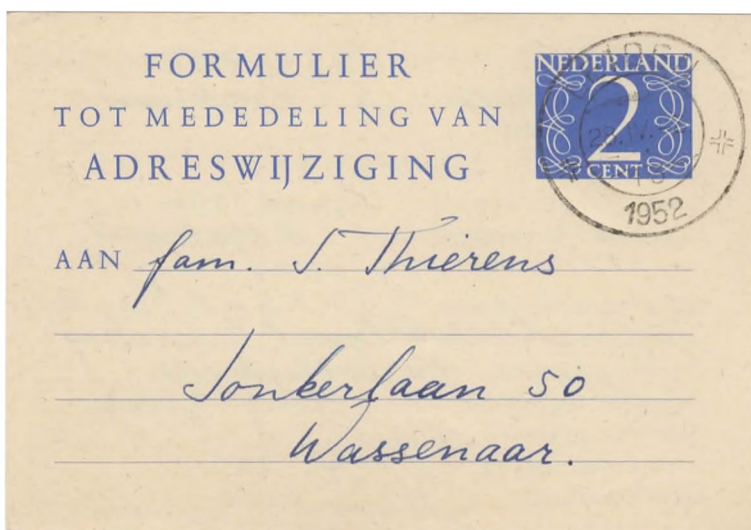 FORMULIER
TOT MEDEDELING VAN
ADRESWIJZIGING
NEDERLAND
2
CENT
1952
AAN fam. J. Thierens
Jonkerlaan 50
Wassenaar.